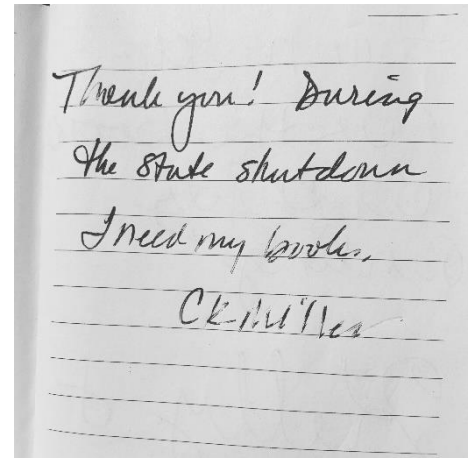 Thank you! During
the state shutdown
I need my books.
CK Miller